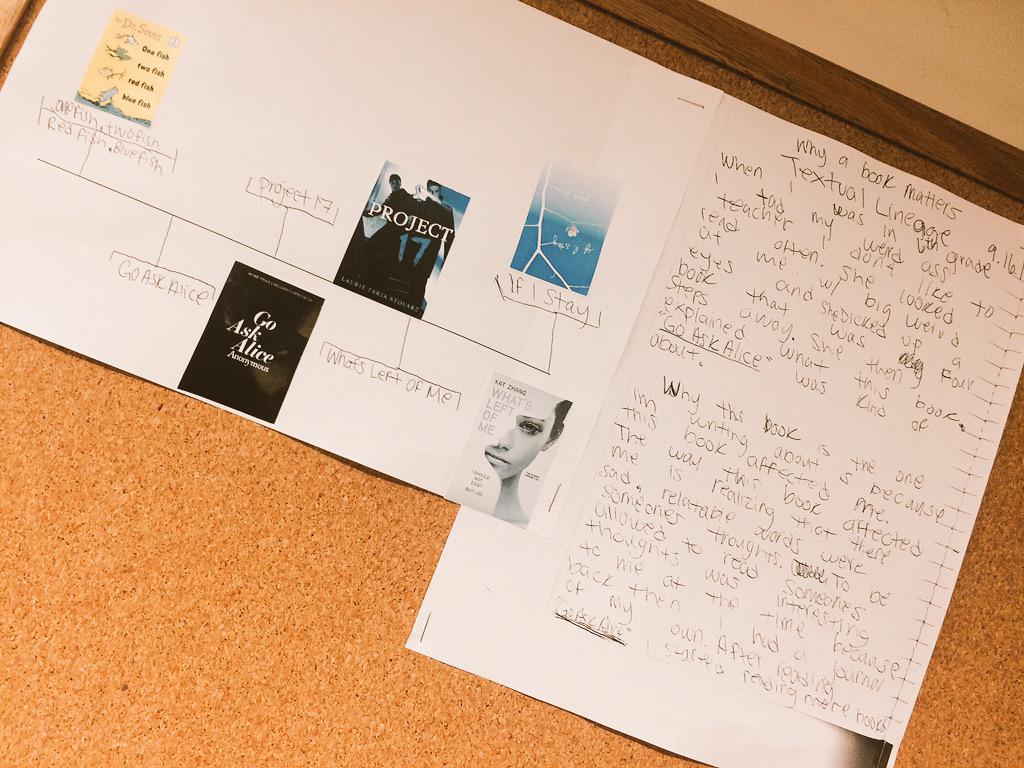 By Dr. Seuss
One fish
two fish
red fish
blue fish
One fish, two fish
Red fish, Blue fish
Project 17
PROJECT
17
LAURIE FARIA STOLARZ
If I Stay
Go Ask Alice
Go
Ask
Alice
Anonymous
What's Left Of Me
KAT ZHANG
WHAT'S
LEFT
OF
ME
I SHOULD
NOT
EXIST
BUT I DO
Why a book matters
Textual Lineage 9.16.1
When I was in 6th grade
I had my weird ass
teacher I dont like to
read often. She looked
at me w/ big weird
eyes and she Picked up a
book that was four
steps away. She then
explained what this book
"Go Ask Alice" was kind of
about.
Why this book is the one
I'm writing about is because
this book affected me.
The way this book affected
me is realizing that there
said, relatable words were
someones thoughts. To be
allowed to read someones
thoughts was interesting
to me at the time because
back then I had a journal
of my own. After reading
"Go Ask Alice" I started reading more books